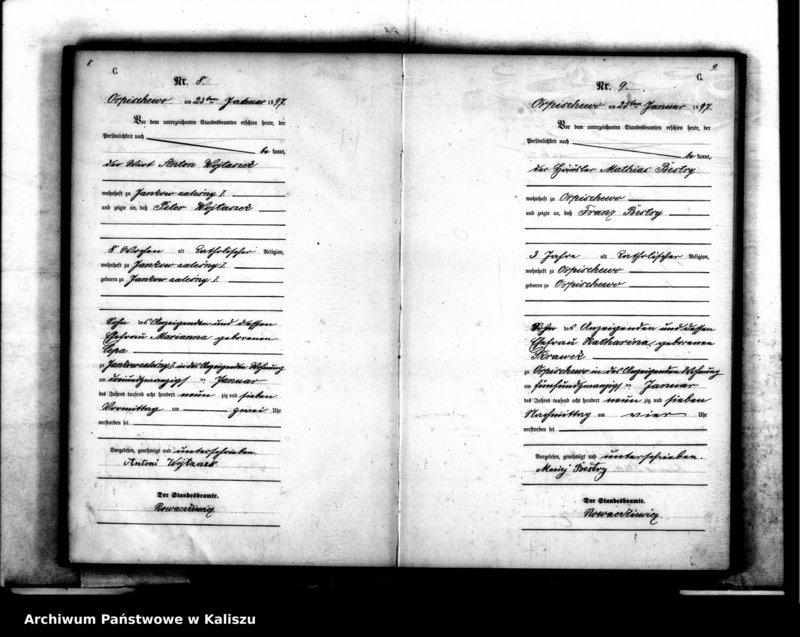 8.
C.
Nr. 8.
Orpischewo am 23ten Januar 1897.
Vor dem unterzeichneten Standesbeamten erschien heute, der
Persönlichkeit nach
be kannt,
der Wirt Anton Wojtaszek
wohnhaft zu Jankow zalesny I.
und zeigte an, daß Peter Wojtaszek
8 Wochen alt katholischer Religion,
wohnhaft zu Jankow zalesny I.
geboren zu Jankow zalesny I.
Sohn des Anzeigenden und dessen
Ehefrau Marianna geborenen
Cepa
zu Jankow zalesny I. in des Anzeigenden Wohnung
am dreiundzwanzigsten Januar
des Jahres tausend acht hundert neun zig und sieben
Vormittag um zwei Uhr
verstorben sei
Vorgelesen, genehmigt und unterschrieben.
Antoni
Der Standesbeamte.
Nowackiewicz
9.
C.
Nr. 9.
Orpischewo am 25ten Januar 1897.
Vor dem unterzeichneten Standesbeamten erschien heute, der
Persönlichkeit nach
be kannt,
der Häusler Mathias Bestry
wohnhaft zu Orpischewo
und zeigte an, daß Franz Bestry
3 Jahre alt katholischer Religion,
wohnhaft zu Orpischewo
geboren zu Orpischewo
Sohn des Anzeigenden und dessen
Ehefrau Katharina, geborenen
Krawck
zu Orpischewo in des Anzeigenden Wohnung
am fünfundzwanzigsten Januar
des Jahres tausend acht hundert neun zig und sieben
Nachmittag um vier Uhr
verstorben sei
Vorgelesen, genehmigt und unterschrieben.
Maciej Bestry
Der Standesbeamte.
Nowackiewicz.
Archiwum Państwowe w Kaliszu